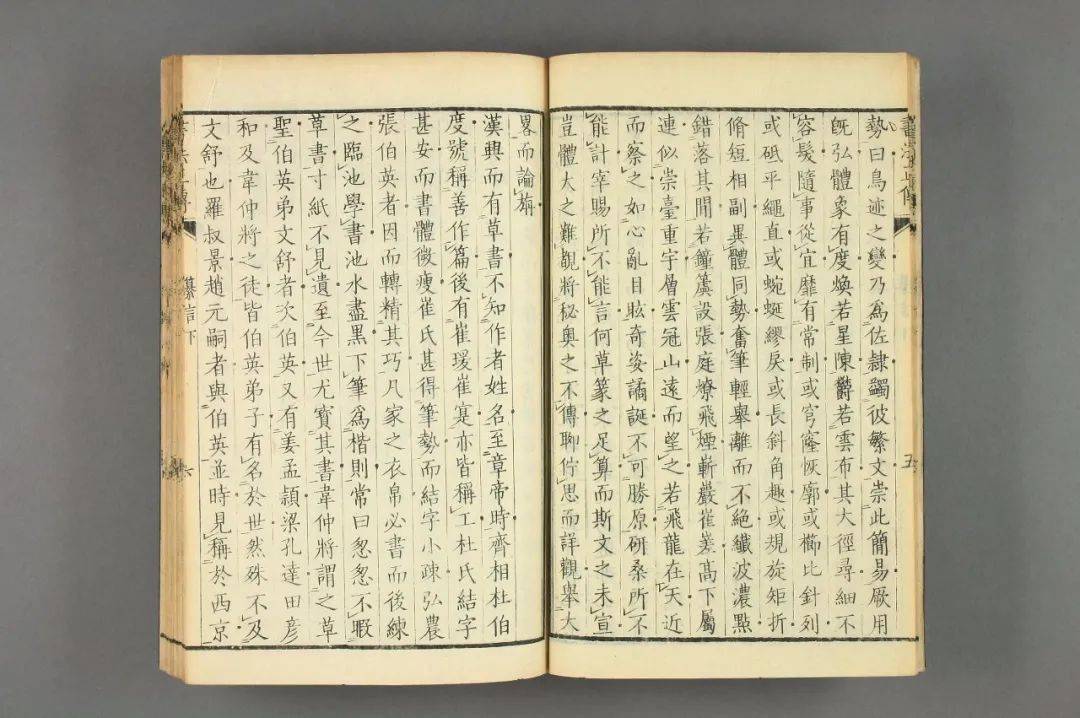 勢曰鳥迹之變乃爲佐隷蠲彼繁文崇此簡易厥用
旣弘體象有度煥若星陳鬱若雲布其大徑尋細不
容髮隨事從宜靡有常制或穹窿恢廓或櫛比針列
或砥平繩直或蜿蜒繆戾或長斜角趣或規旋矩折
脩短相副異體同勢奮筆輕舉離而不絕纖波濃點
錯落其閒若鐘簴設張庭燎飛煙嶄巖崔嵳高下屬
連似崇臺重宇層雲冠山遠而望之若飛龍在天近
而察之如心亂目眩奇姿譎誕不可勝原研桑所不
能計宰賜所不能言何草篆之足算而斯文之未宣
豈體大之難觀將秘奥之不傳聊佇思而詳觀舉大
畧而論旃
漢興而有草書不知作者姓名至章帝時齊相杜伯
度號稱善作篇後有崔瑗崔寔亦皆稱工杜氏結字
甚安而書體微瘦崔氏甚得筆勢而結字小疎弘農
張伯英者因而轉精其巧凡家之衣帛必書而後練
之臨池學書池水盡黑下筆爲楷則常曰怱怱不暇
草書寸紙不見遺至今世尤寳其書韋仲將謂之草
聖伯英弟文舒者次伯英又有姜孟頴梁孔達田彦
和及韋仲將之徒皆伯英弟子有名於世然殊不及
文舒也羅叔景趙元嗣者與伯英並時見稱於西京
五
纂言下
六